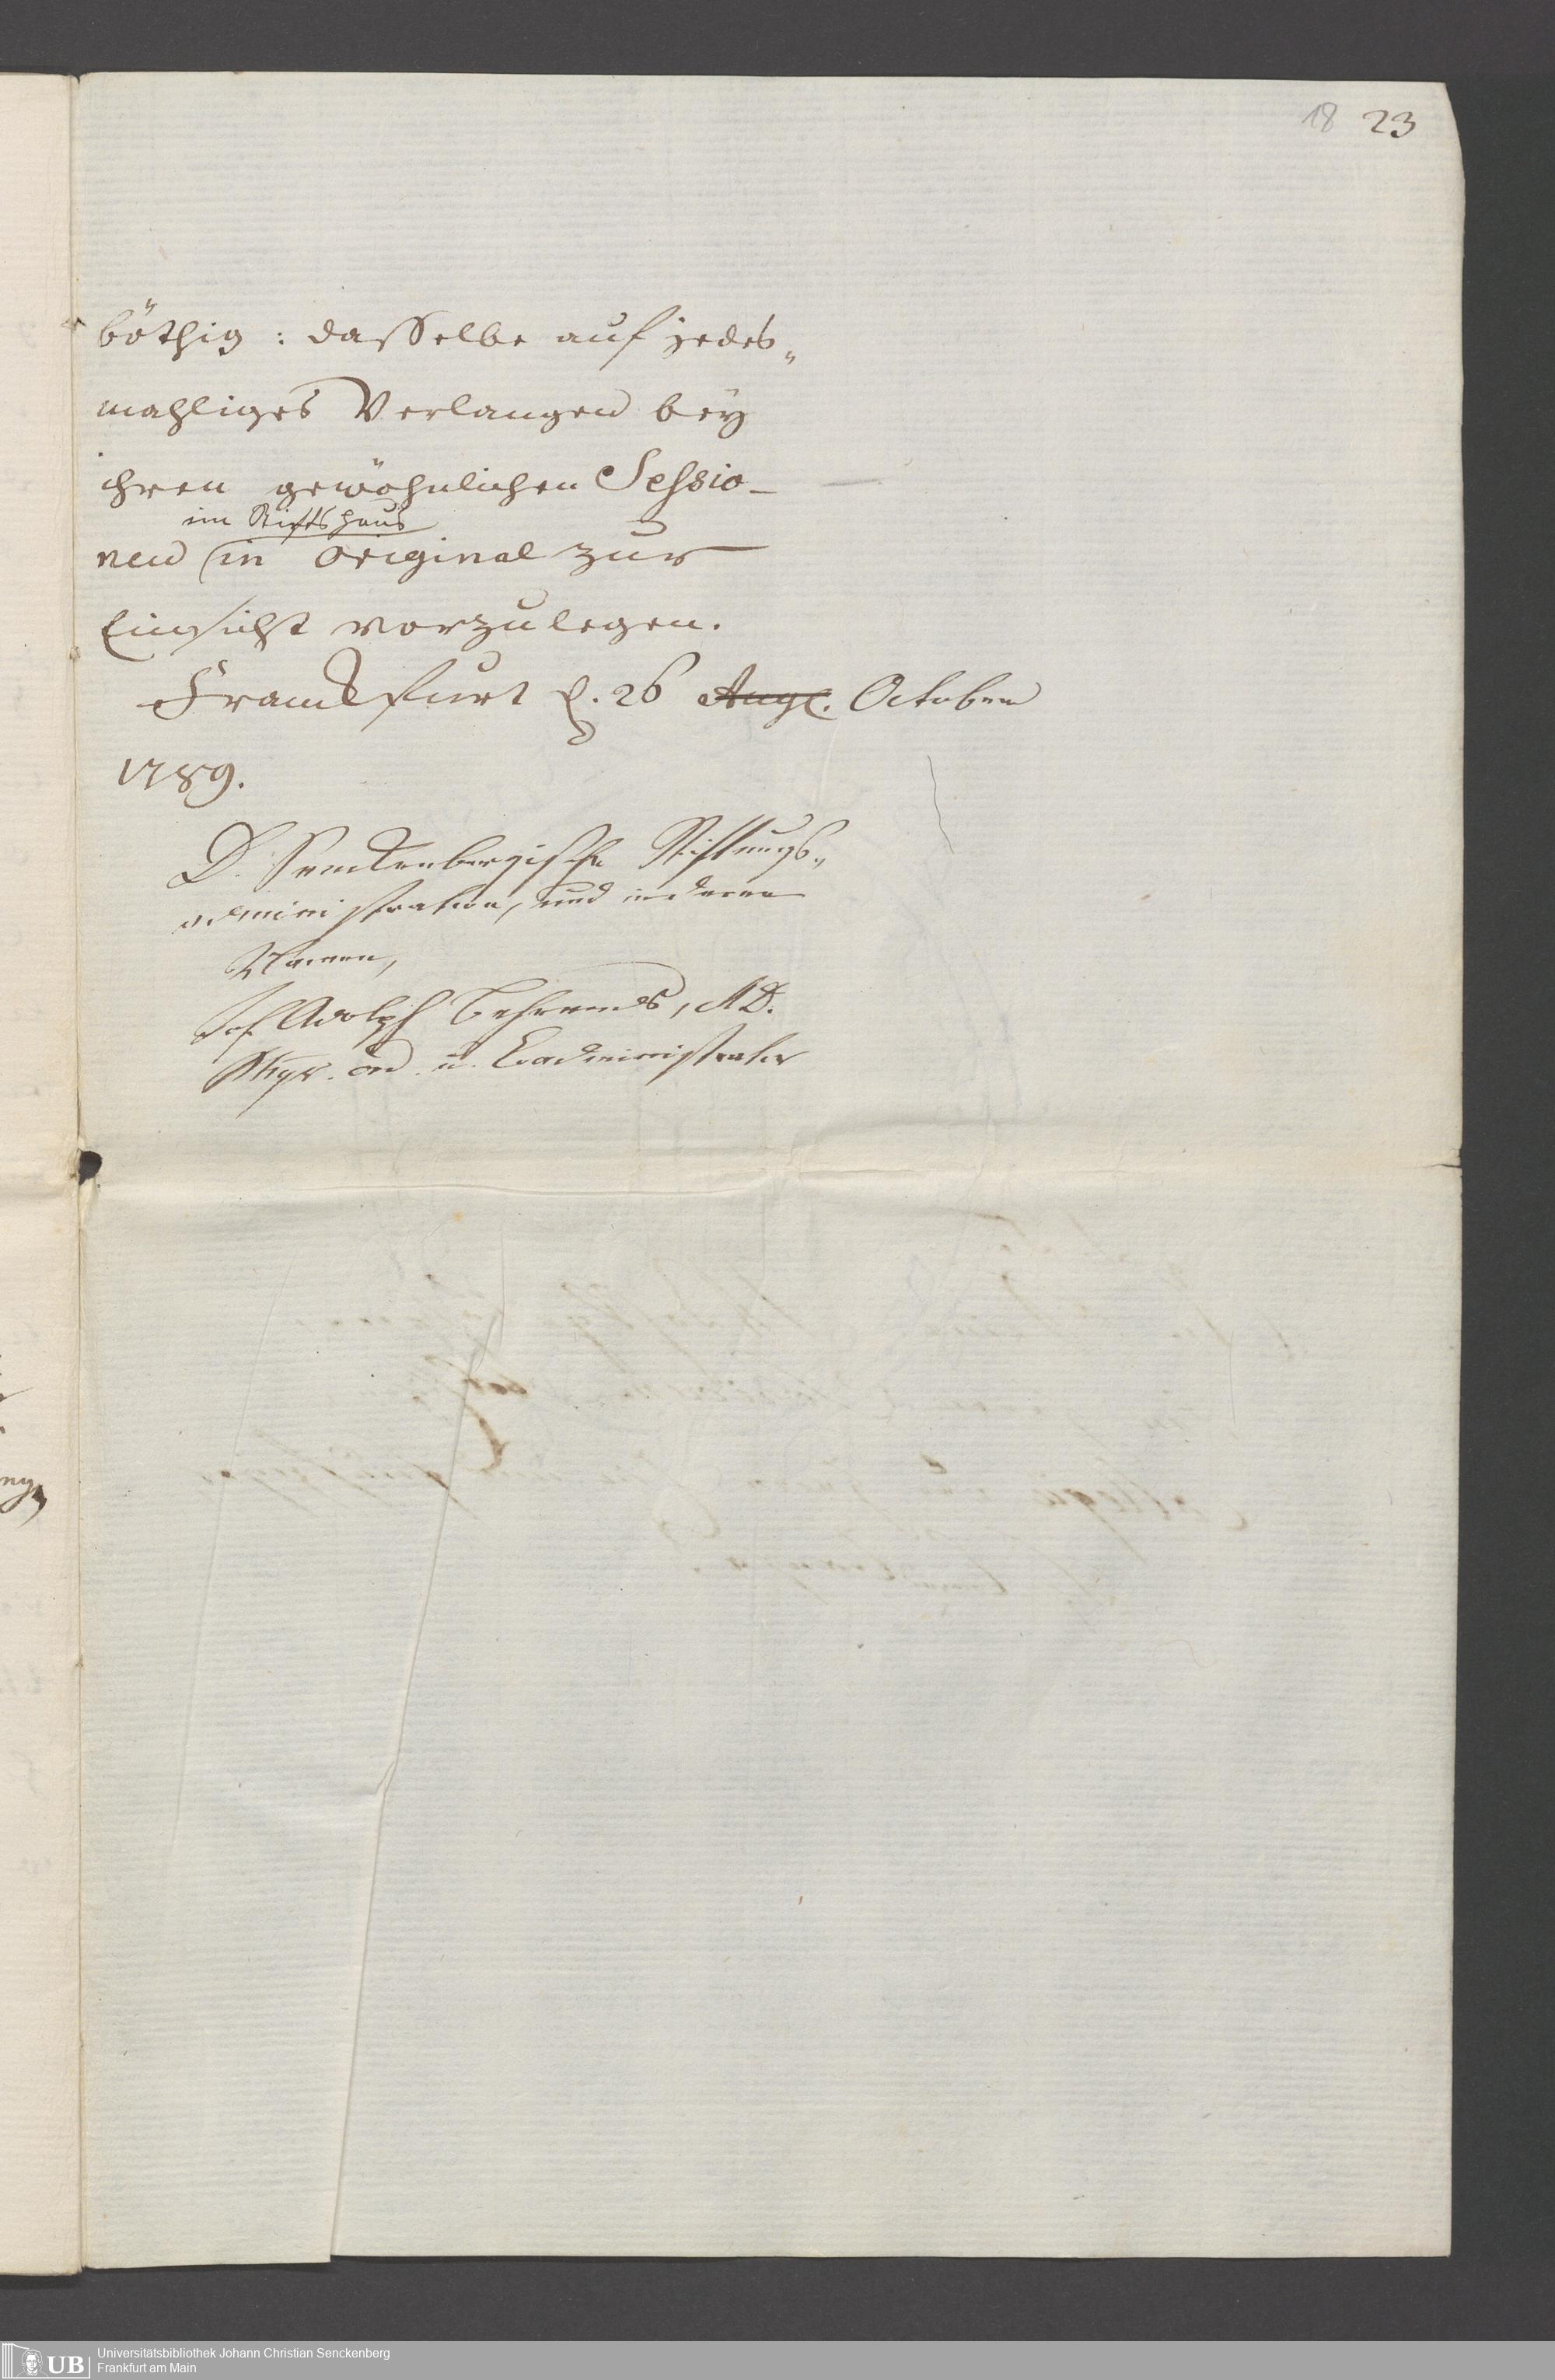 18 23
böthig: dasselbe auf jedes„
mahliges Verlangen bey
ihren gewöhnlichen Sessio-
im Stiftshaus
nen in Original zur
Einsicht vorzulegen.
Franckfurt d. 26 Augl. October
1789.
D. Senckenbergische Stiftungs„
administration, und in deren
Namen,
Joh Adolph Behrends, MD.
Phys. ord. u. Coadministrator
UB
Universitätsbibliothek Johann Christian Senckenberg
Frankfurt am Main